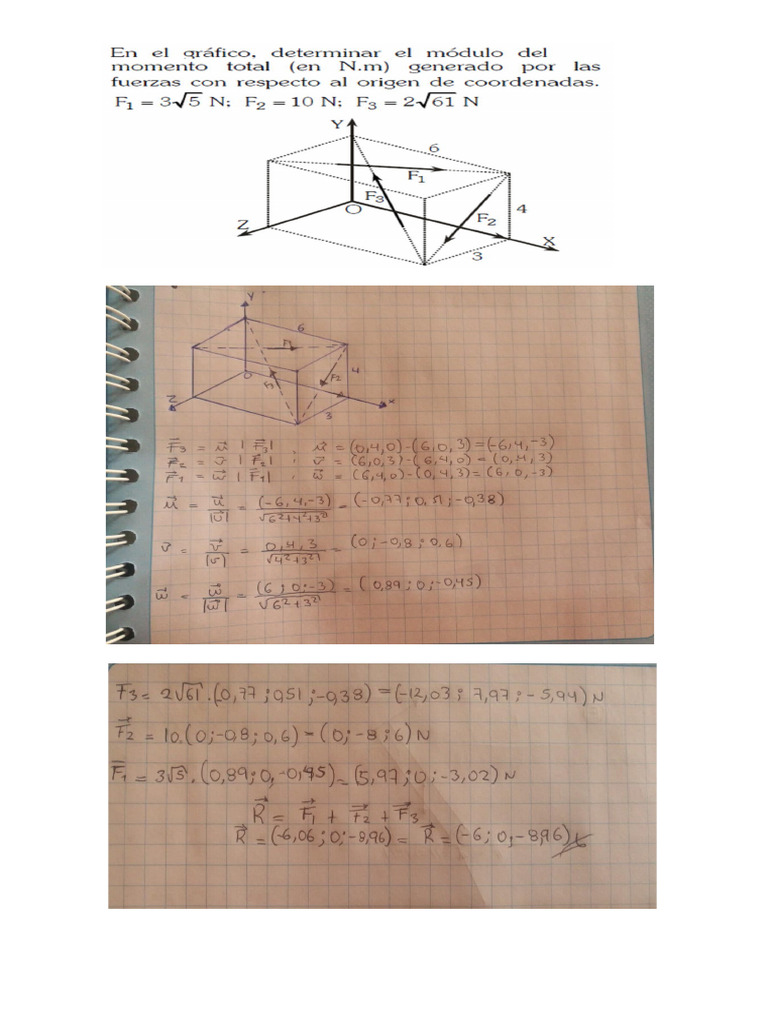 En el gráfico, determinar el módulo del
momento total (en N.m) generado por las
fuerzas con respecto al origen de coordenadas.
F₁ = 3√5 N; F₂ = 10 N; F₃ = 2√61 N
Y
6
F₁
F₃
F₂
4
O
Z
X
3
Y
6
F₁
4
F₂
O
F₃
Z
x
3
F₃ = u⃗ |F₃| ; u⃗ = (0,4,0)-(6,0,3)=(-6,4,-3)
F₂ = v⃗ |F₂| ; v⃗ = (6,0,3)-(6,4,0)=(0,4,3)
F₁ = w⃗ |F₁| ; w⃗ = (6,4,0)-(0,4,3)=(6,0,-3)
u⃗ = u⃗/|u| = (-6,4,-3)/√6²+4²+3² = (-0,77; 0,51; -0,38)
v = v⃗/|v| = 0,4,3/√4²+3² = (0; -0,8; 0,6)
w⃗ = w⃗/|w| = (6; 0; -3)/√6²+3² = (0,89; 0; -0,45)
F₃ = 2√61.(0,77; 0,51; -0,38) = (-12,03; 7,97; -5,94) N
F⃗₂ = 10.(0; -0,8; 0,6) = (0; -8; 6) N
F₁ = 3√5.(0,89; 0, -0,45) = (5,97; 0; -3,02) N
R⃗ = F⃗₁ + F⃗₂ + F⃗₃
R⃗ = (-6,06; 0; -8,96) = R⃗ = (-6; 0, -8,96)